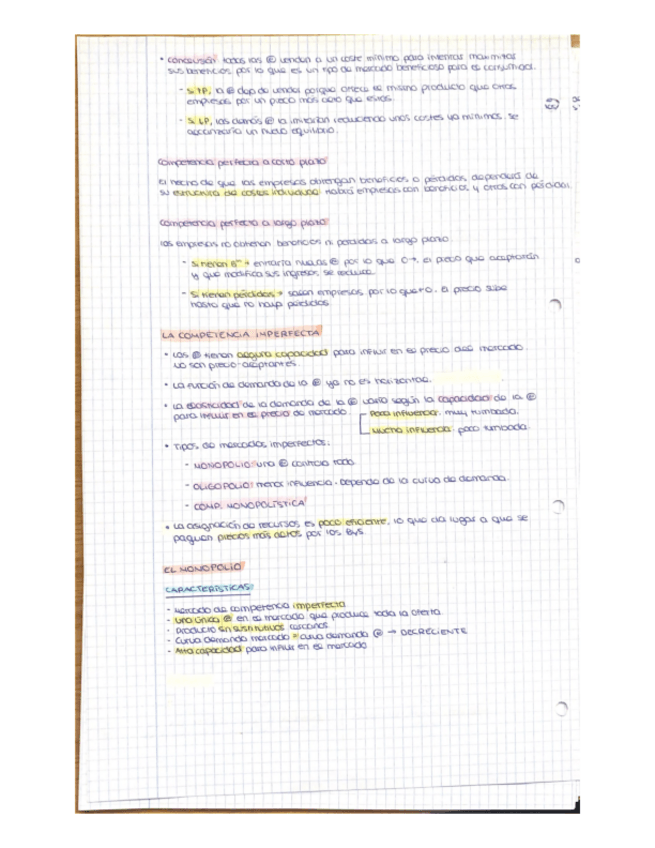 • Conclusión: todas las Ⓔ venden a un coste mínimo para intentar maximizar
sus beneficios por lo que es un tipo de mercado beneficioso para el consumidor.
- Si ↑P, la Ⓔ deja de vender porque ofrece el mismo producto que otras
empresas por un precio más caro que estas.
- Si ↓P, las demás Ⓔ la imitarían reduciendo unos costes ya mínimos. Se
alcanzaría un nuevo equilibrio.
Competencia perfecta a corto plazo
El hecho de que las empresas obtengan beneficios o pérdidas dependerá de
su estructura de costes individual. Habrá empresas con beneficios y otras con pérdidas.
Competencia perfecta a largo plazo
Las empresas no obtienen beneficios ni pérdidas a largo plazo.
- Si tienen Bº → entraría nuevas Ⓔ por lo que O→. El precio que aceptarán
y que modifica sus ingresos se reduce.
- Si tienen pérdidas → salen empresas por lo que ←O. El precio sube
hasta que no haya pérdidas.
LA COMPETENCIA IMPERFECTA
• Las Ⓔ tienen alguna capacidad para influir en el precio del mercado.
No son precio-aceptantes.
• La función de demanda de la Ⓔ ya no es horizontal.
• La elasticidad de la demanda de la Ⓔ varía según la capacidad de la Ⓔ
para influir en el precio de mercado. Poca influencia: muy tumbada.
Mucha influencia: poco tumbada.
• Tipos de mercados imperfectos:
- MONOPOLIO: una Ⓔ controla todo.
- OLIGOPOLIO: menor influencia. Depende de la curva de demanda.
- COMP. MONOPOLÍSTICA
• La asignación de recursos es poco eficiente, lo que da lugar a que se
paguen precios más altos por los ByS.
EL MONOPOLIO
CARACTERÍSTICAS:
- Mercado de competencia imperfecta
- Una única Ⓔ en el mercado que produce toda la oferta.
- Producto sin sustitutivos cercanos.
- Curva Demanda mercado = curva demanda Ⓔ → DECRECIENTE
- Alta capacidad para influir en el mercado